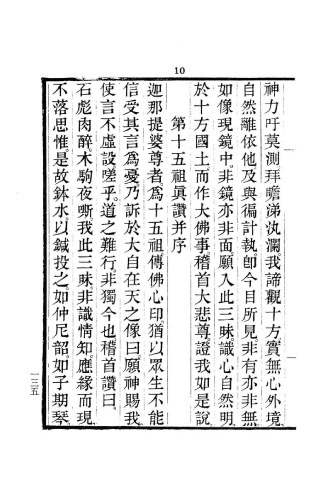 10
神力吁莫測拜瞻涕汍瀾我諦觀十方實無心外境
自然離依他及與徧計執卽今目所見非有亦非無
如像現鏡中非鏡亦非面願入此三昧識心自然明
於十方國土而作大佛事稽首大悲尊證我如是說
第十五祖眞讚并序
迦那提婆尊者爲十五祖傳佛心印猶以眾生不能
信受其言爲憂乃訴於大自在天之像曰願神賜我
使言不虛設嗟乎道之難行非獨今也稽首讚曰
石彪肉醉木駒夜嘶我此三昧非識情知應緣而現
不落思惟是故鉢水以鍼投之如仲尼韶如子期琴
一三五